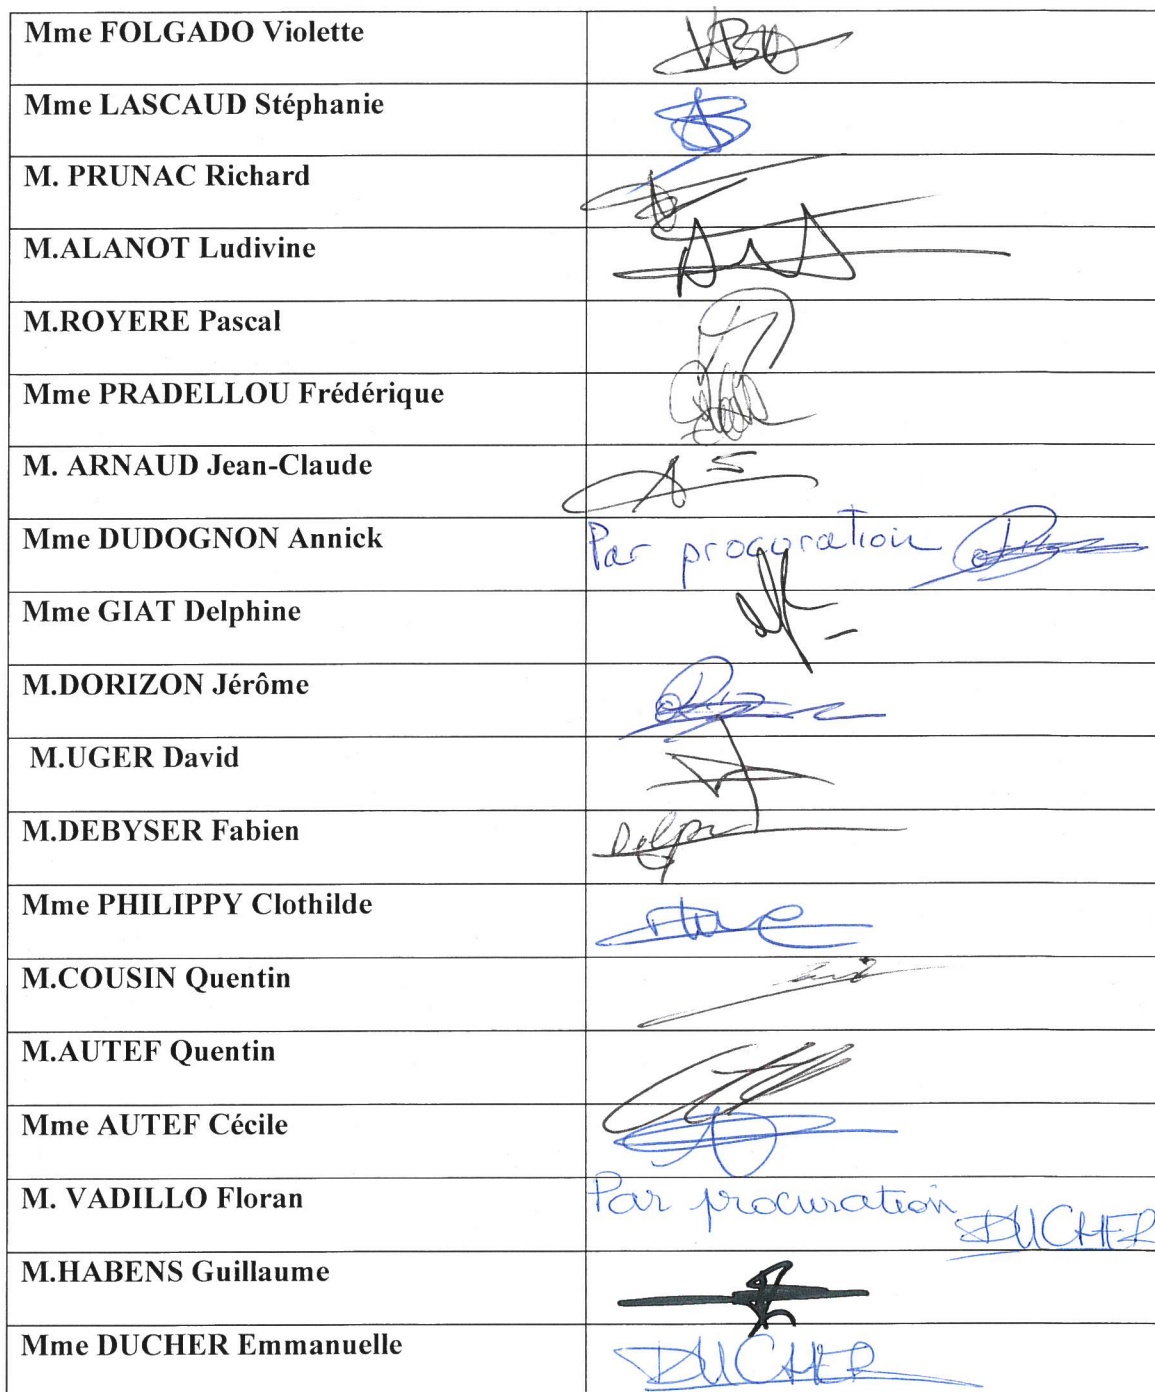 Mme FOLGADO Violette
Mme LASCAUD Stéphanie
M. PRUNAC Richard
M.ALANOT Ludivine
M.ROYERE Pascal
Mme PRADELLOU Frédérique
M. ARNAUD Jean-Claude
Mme DUDOGNON Annick Par procuration
Mme GIAT Delphine
M.DORIZON Jérôme
M.UGER David
M.DEBYSER Fabien
Mme PHILIPPY Clothilde
M.COUSIN Quentin
M.AUTEF Quentin
Mme AUTEF Cécile
M. VADILLO Floran Par procuration DUCHER
M.HABENS Guillaume
Mme DUCHER Emmanuelle DUCHER